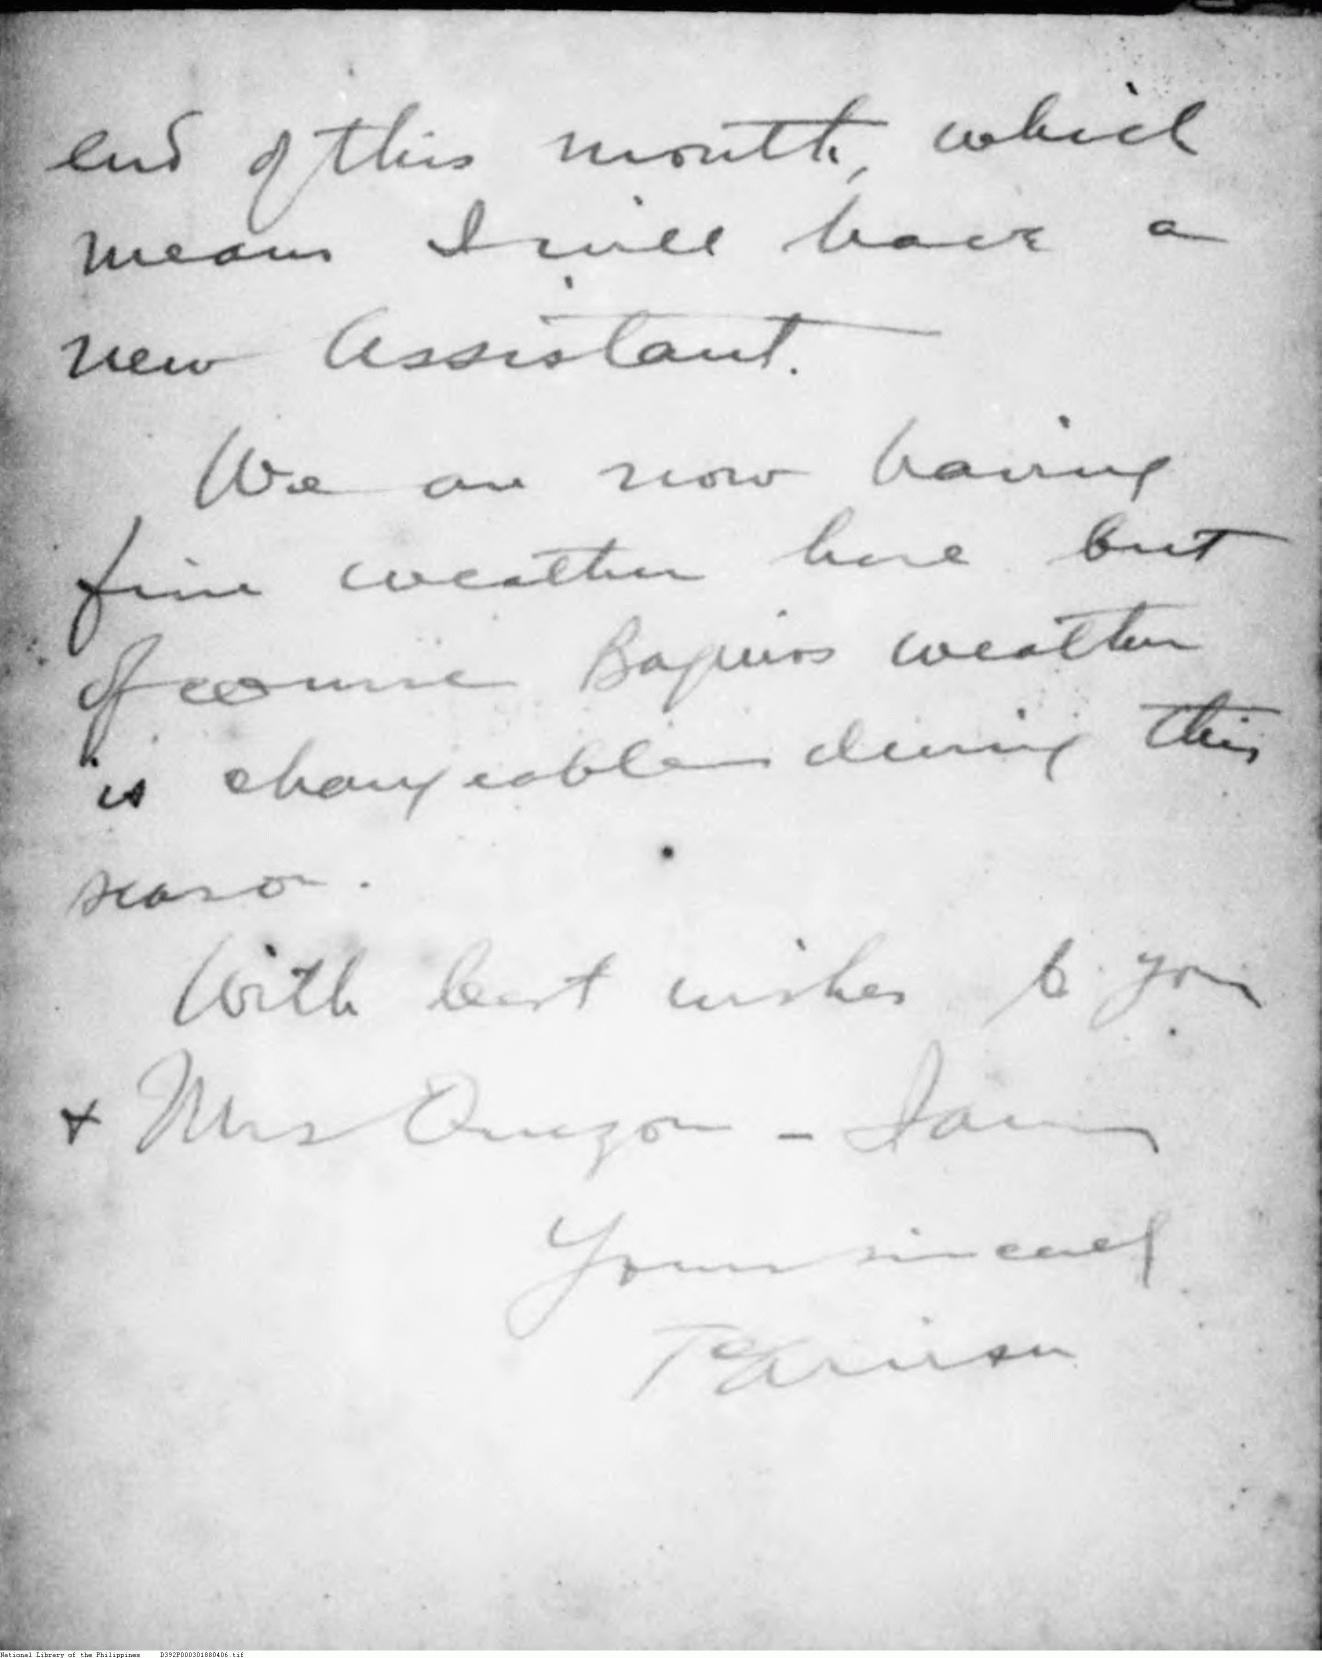 end of this month, which
means I will have a
new Assistant.
We are now having
fine weather here but
of course Baguios weather
is changeable during this
season.
With best wishes to you
+ Mrs Quezon - I am
Yours sincerely
National Library of the Philippines D392P000301880406.tif